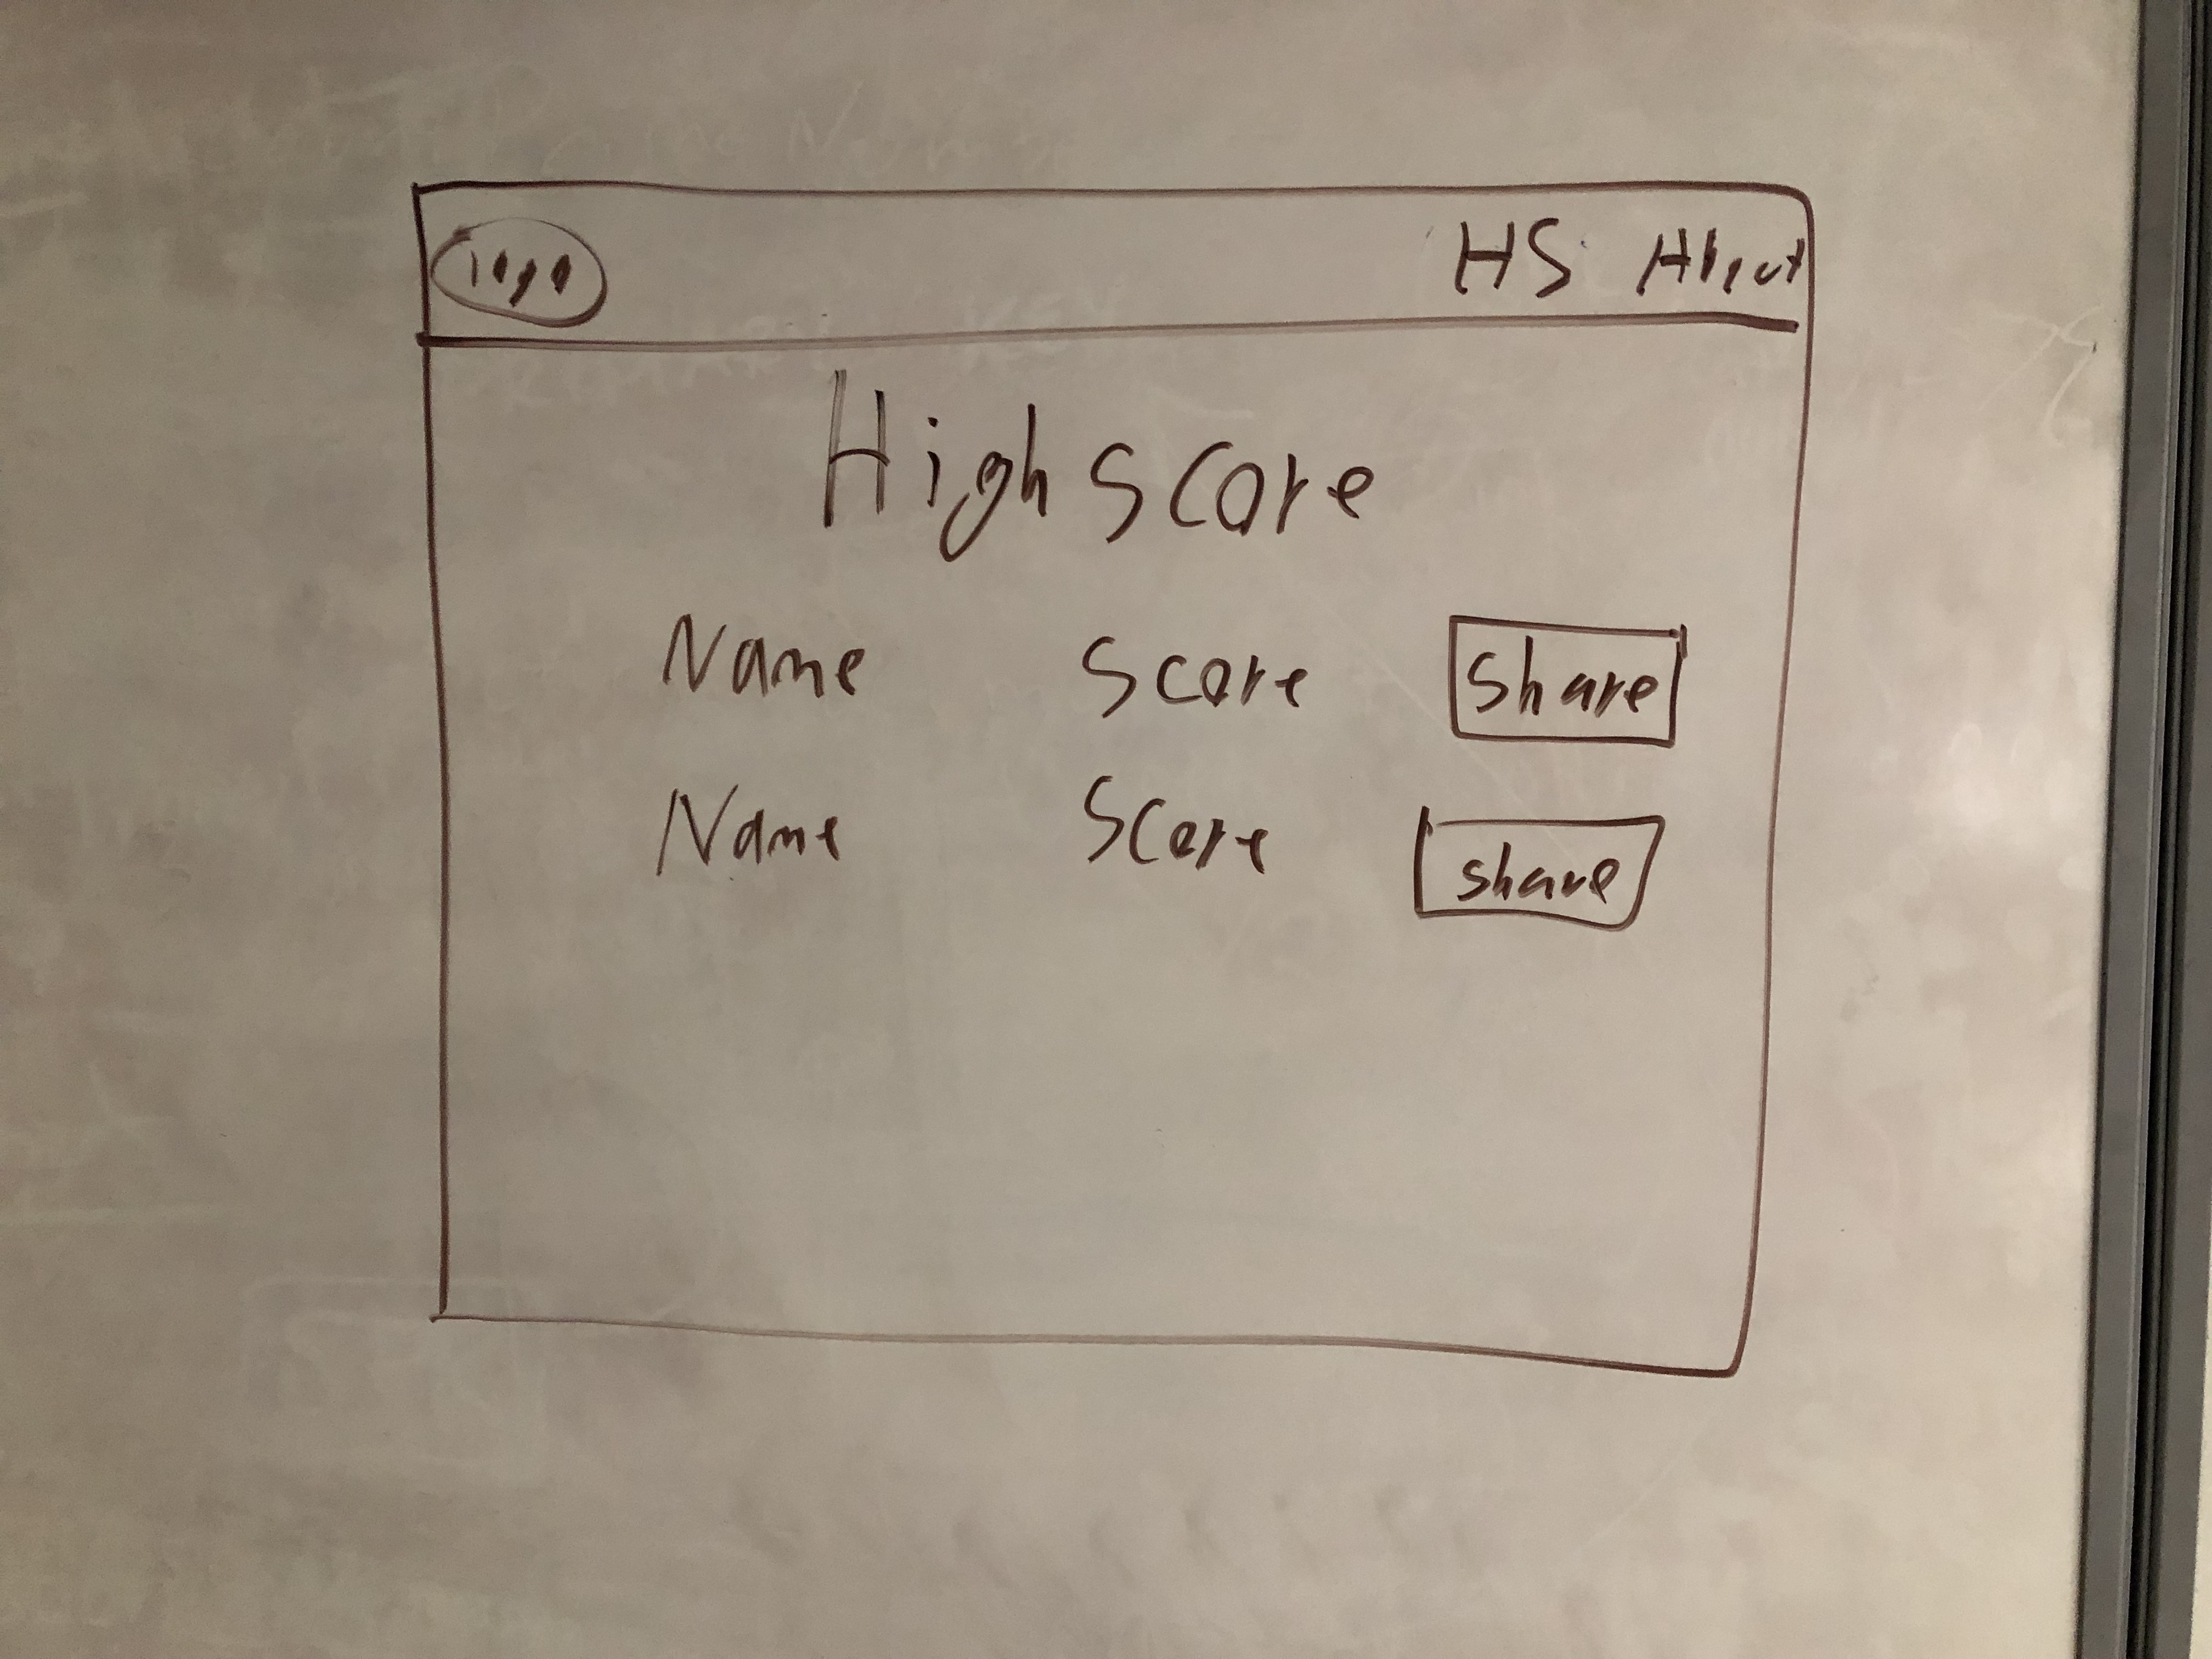 logo HS About
High Score
Name Score Share
Name Score share